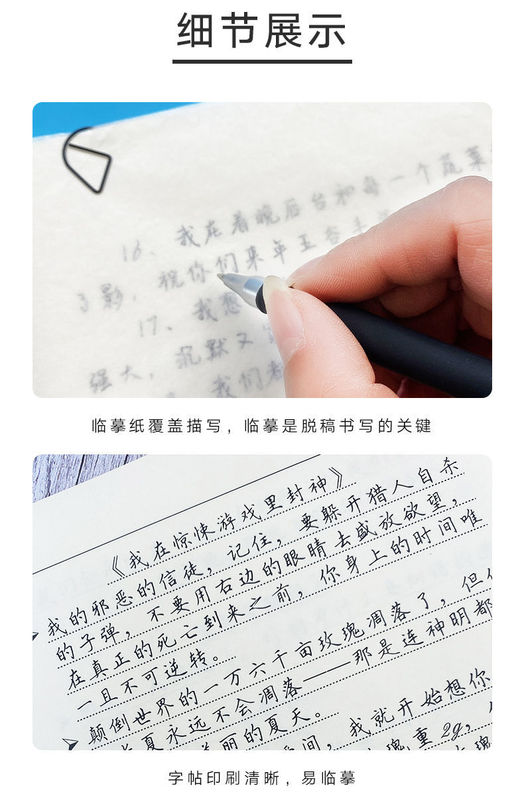 细节展示
16、我在看晚后台和每一个蔬菜
了影，祝你们来年五谷丰
17、我想
强大，沉默又
我们都
临摹纸覆盖描写，临摹是脱稿书写的关键
《我在惊悚游戏里封神》
我的邪恶的信徒，记住，要躲开猎人自杀
的子弹，不要用右边的眼睛去盛放欲望，
在真正的死亡到来之前，你身上的时间唯
一且不可逆转。
颠倒世界的一万六千亩玫瑰凋落了，但
夏永远不会凋落——那是连神明都
丽的夏天。
间，我就开始想你
瑰重2g，
字帖印刷清晰，易临摹